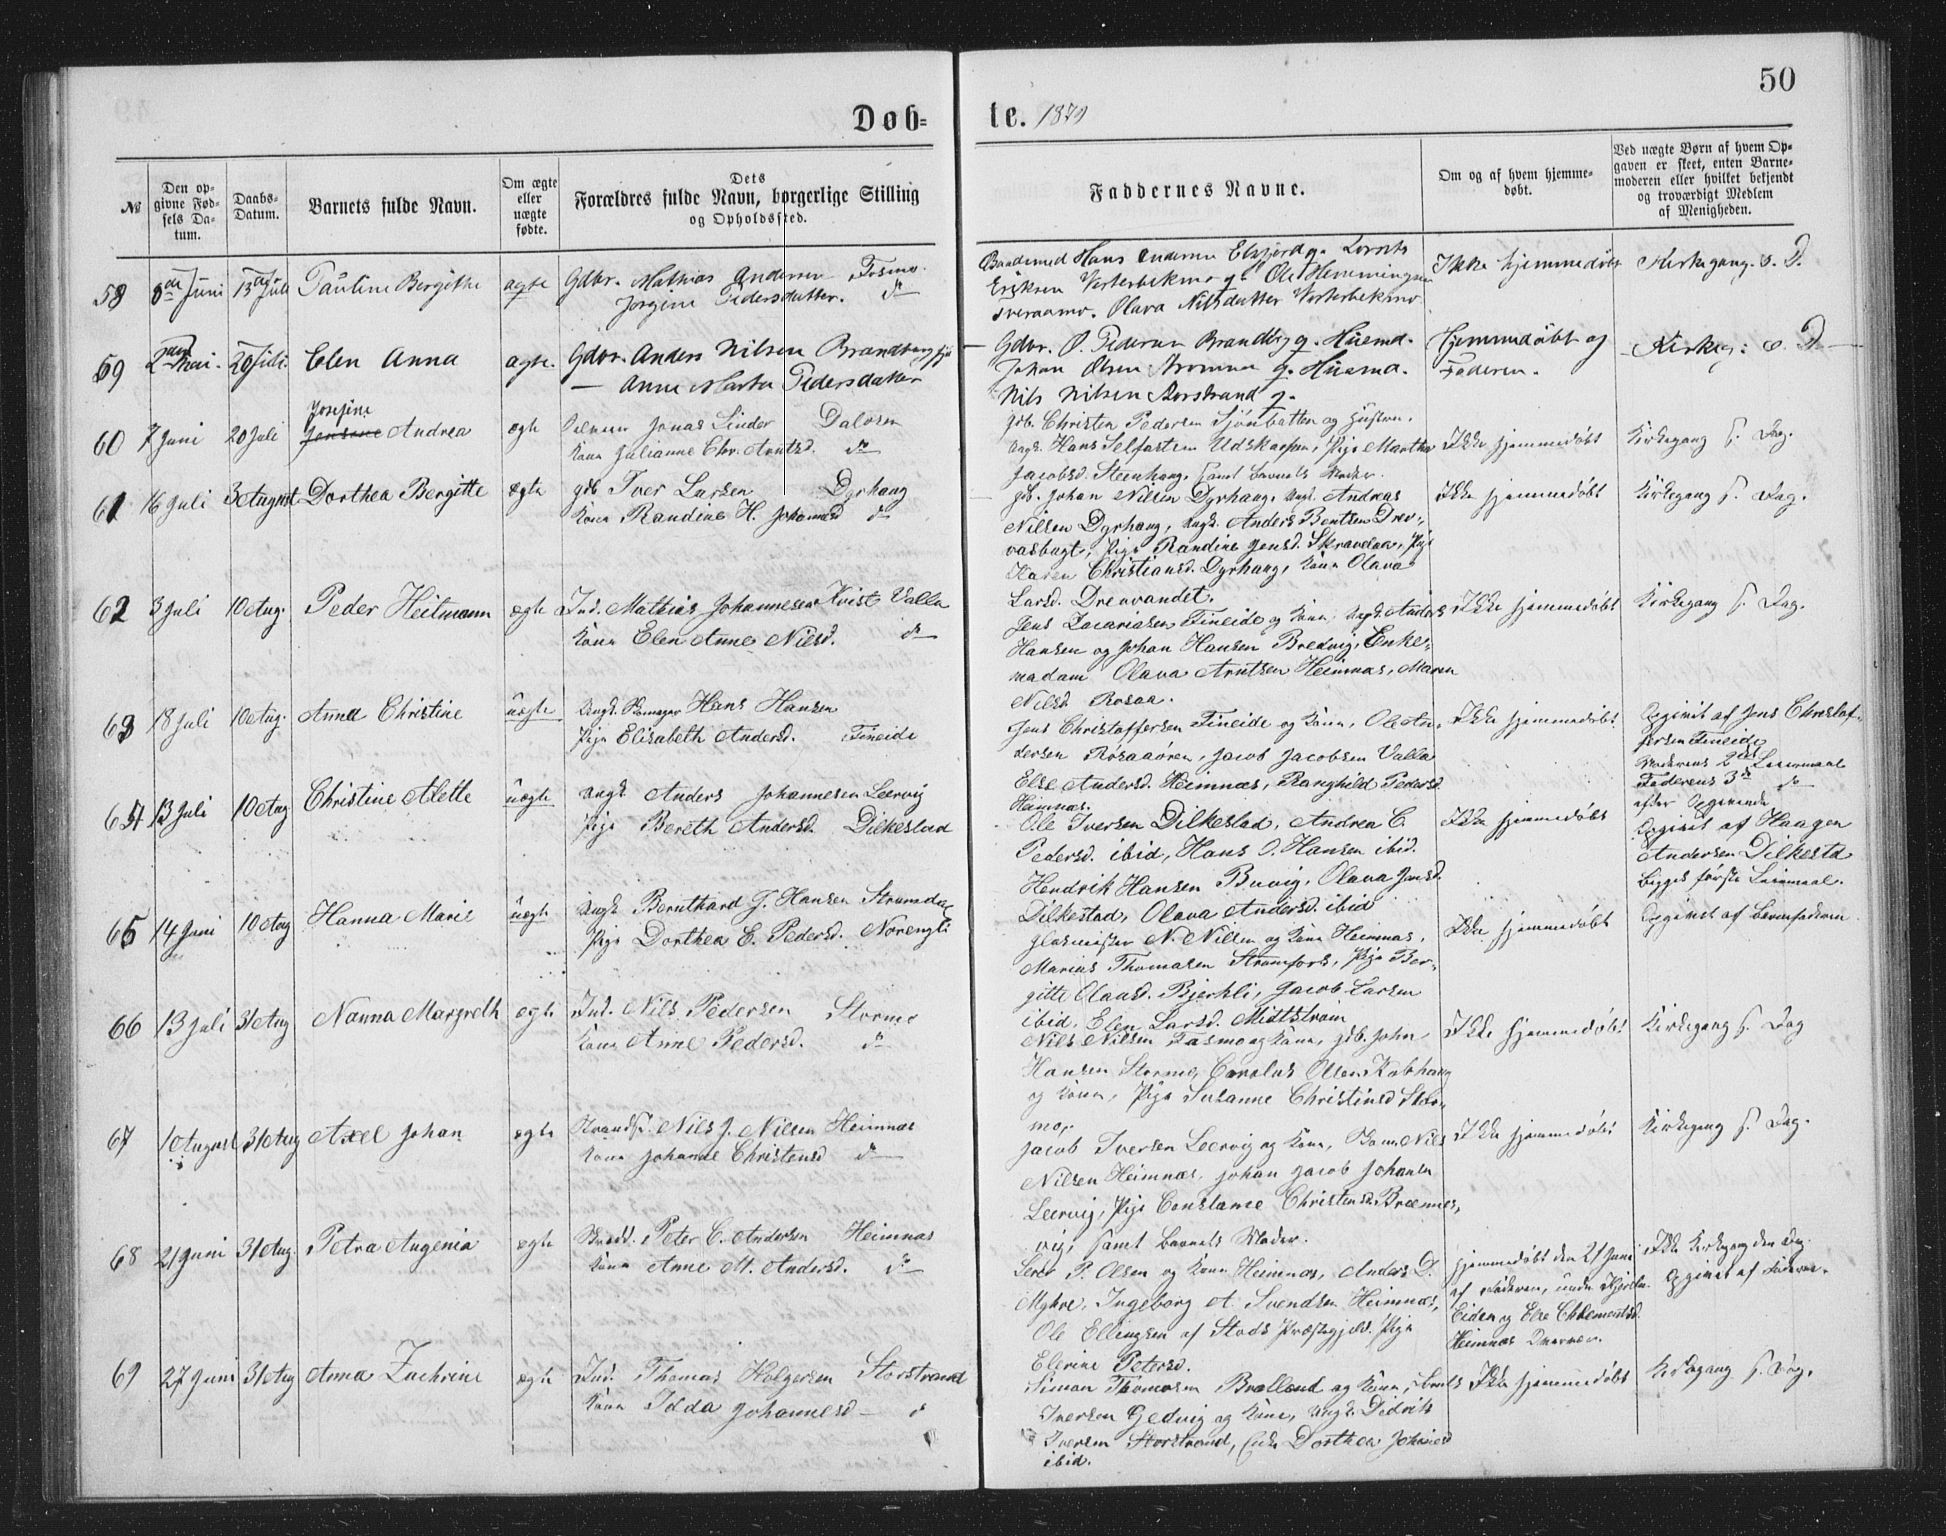 50
Døb-
te. 1879
№
Den opgivne Fødsels Datum.
Daabs-Datum.
Barnets fulde Navn.
Om ægte eller uægte fødte.
Dets Forældres fulde Navn, borgerlige Stilling og Opholdssted.
Faddernes Navne.
Om og af hvem hjemmedøbt.
Ved uægte Børn af hvem Opgaven er skeet, enten Barnemoderen eller hvilket bekjendt og troværdigt Medlem af Menigheden.
58 8de Juni 13de Juli Pauline Bergithe ægte Gdbr. Mathias Andersen Fosmo.
Jørgine Pedersdatter. do
Hans Andersen Elsfjord g.
Eriksen Vesterbekmo g. Ole Hemmingsen
Sveraamo. Olava Nilsdatter Vesterbekmo
Ikke hjemmedøbt Kirkegang s. D.
59 2den Mai. 20 Juli. Elen Anna ægte. Gdbr. Anders Nilsen
Anne Marta Pedersdatter
Gdbr. P. Pedersen g. Husmd.
Johan Olsen g. Husmd.
Nils Nilsen g.
Hjemmedøbt og
Faderen.
Kirkeg: s. D
60 7 Juni 20 Juli Josefine
Andrea ægte Jonas Linder Dalosen
Kone Julianne Chr. Arntsd. do
gdb. Christen Pedersen Sjønbotten og Hustru,
Ungk. Hans Selfortsen Udskarpen, Pige Martha
Jacobsd. Steenhaug, samt Barnets Moder.
Ikke hjemmedøbt Kirkegang s. Dag.
61 16 Juli 3 August Dorthea Bergitte ægte gdb Iver Larsen Dyrhaug
Kone Randine H. Johannesd do
gdb. Johan Nilsen Dyrhaug, Ungk. Andreas
Nilsen Dyrhaug, Ungk. Anders Bentsen Drev-
vasbugt, Pige Randine Jensd. Skravlaa, Pige
Karen Christiansd. Dyrhaug, Kone Olava
Larsd. Drevvandet.
Ikke hjemmedøbt Kirkegang s. Dag.
62 3 Juli 10 Aug. Peder Heitmann ægte Ind. Mathias Johannesen Kvist Valla
Kone Elen Anne Nilsd. do
Jens Zacariasen Fineide og Kone, Ungk. Anders
Hansen og Johan Hansen Bredvig, Enke-
madam Olava Arntsen Heimnæs, Maren
Nilsd Rosaa.
Ikke hjemmedøbt Kirkegang s. Dag.
63 18 Juli 10 Aug. Anna Christine uægte Ungk. Skomager Hans Hansen
Pige Elisabeth Andersd. Fineide
Jens Christoffersen Fineide og Kone, Ole An-
dersen Røsaaøren, Jacob Jacobsen Valla
Else Andersd. Heimnæs, Ranghild Pedersd
Heimnæs.
Ikke hjemmedøbt
Opgivet af Jens Christof-
fersen Fineide
Moderens 2det Leiermaal
Faderens 3de do
efter Opgivende
64 13 Juli 10 Aug Christine Alette uægte Ungk Anders Johannesen Leervig
Pige Bereth Andersd. Dilkestad
Ole Iversen Dilkestad, Andrea C.
Pedersd. ibid, Hans O. Hansen ibid.
Hendrik Hansen Buvig, Olava Jensd.
Dilkestad, Olava Andersd. ibid
Ikke hjemmedøbt
Opgivet af Haagen
Andersen Dilkestad
Begges første Leiermaal.
65 14 Juni 10 Aug Hanna Marie uægte Ungk Bernthard J. Hansen
Pige Dorthea E. Pedersd.
Glasmester N. Nilsen og Kone Heimnæs,
Marius Thomasen Strømfors, Pige Ber-
gitte Olausd. Bjerkli, Jacob Larsen
ibid. Elen Larsd.
Ikke hjemmedøbt Opgivet af Barnefaderen
66 13 Juli 31 Aug Nanna Margreth ægte Ind. Nils Pedersen Stormo
Kone Anne Pedersd. do
Nils Nilsen Fasmo og Kone, gdb. John
Hansen Stormo, Carolus Olsen Kobhaug
og Kone, Pige Susanne Christinsd Stor-
mo.
Ikke hjemmedøbt Kirkegang s. Dag
67 1 August 31 Aug Axel Johan ægte Strands. Nils J. Nilsen Heimnæs
Kone Johanne Christensd do
Jacob Iversen Leervig og Kone, Nils
Nilsen Heimnæs, Johan Jacob Johansen
Leervig, Pige Constance Christensd. Brænnes-
vig, samt Barnets Moder.
Ikke hjemmedøbt Kirkegang s. Dag.
68 21 Juni 31 Aug. Petra Augenia ægte Peter C. Andersen Heimnæs
Kone Anne M. Andersd. do
P. Olsen og Kone Heimnæs, Anders D.
Myhre, Ingeborg A. Svendsen Heimnæs,
Ole Ellingsen af Stods Præstegjeld. Pige
Elerine Petersd.
hjemmedøbt den 21 Juni
af Faderen,
Eiden og Else Chlementsd.
Heimnæs
Ikke Kirkegang den Dag.
Opgivet af Faderen.
69 27 Juni 31 Aug Anna Zachrine ægte Ind. Thomas Holgersen Storstrand
Kone Idda Johannesd do
Simon Thomasen Bratland og Kone,
Iversen Gedvig og Kone, Ungk. Didrik
Iversen Storstrand, Enke Dorthea Johnsd
ibid.
Ikke hjemmedøbt Kirkegang s. Dag.